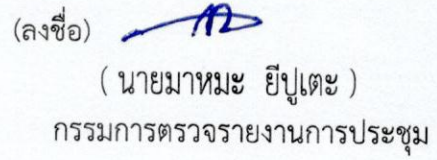 (ลงชื่อ)
( นายมาหมะ ยีปูเตะ )
กรรมการตรวจรายงานการประชุม